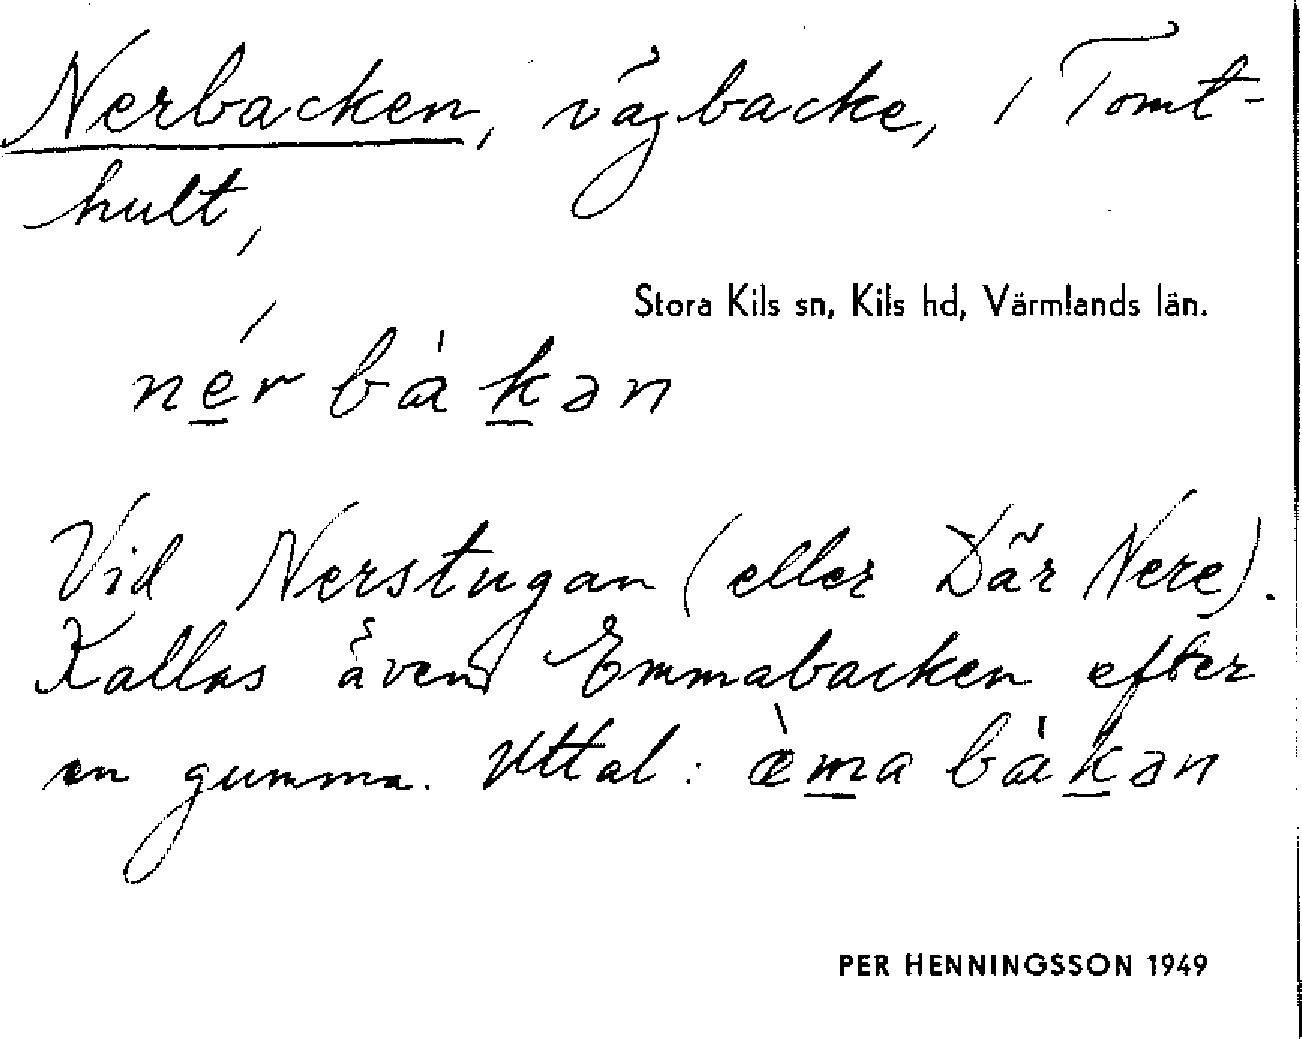 Nerbacken, vägbacke, i Tomt-
hult,
Stora Kils sn, Kils hd, Värmlands län.
nérbàkən
Vid Nerstugan (eller Där Nere).
Kallas även Emmabacken efter
en gumma. Uttal: æ̀mabàkən
PER HENNINGSSON 1949